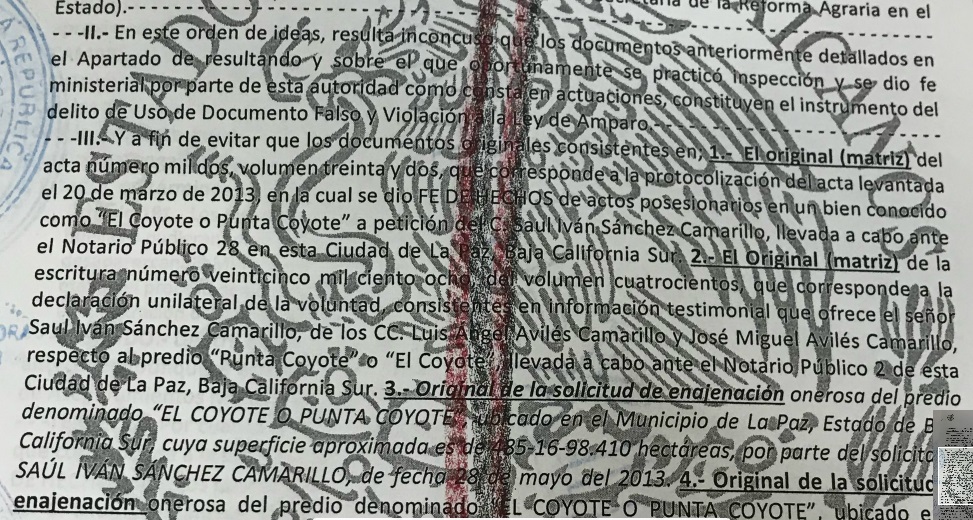 Estado).- de la Reforma Agraria en el
- - -II.- En este orden de ideas, resulta inconcuso que los documentos anteriormente detallados en
el Apartado de resultando y sobre el que oportunamente se practicó Inspección y se dio fe
ministerial por parte de esta autoridad como consta en actuaciones, constituyen el instrumento del
delito de Uso de Documento Falso y Violación a la Ley de Amparo.
- - -III.- Y a fin de evitar que los documentos originales consistentes en; 1.- El original (matriz) del
acta número mil dos, volumen treinta y dos, que corresponde a la protocolización del acta levantada
el 20 de marzo de 2013, en la cual se dio FE DE HECHOS de actos posesionarios en un bien conocido
como “El Coyote o Punta Coyote” a petición del C. Saul Iván Sánchez Camarillo, llevada a cabo ante
el Notario Público 28 en esta Ciudad de La Paz, Baja California Sur. 2.- El Original (matriz) de la
escritura número veinticinco mil ciento ocho, del volumen cuatrocientos, que corresponde a la
declaración unilateral de la voluntad, consistentes en información testimonial que ofrece el señor
Saul Iván Sánchez Camarillo, de los CC. Luis Ángel Avilés Camarillo y José Miguel Avilés Camarillo,
respecto al predio “Punta Coyote” o “El Coyote” llevada a cabo ante el Notario Público 2 de esta
Ciudad de La Paz, Baja California Sur. 3.- Original de la solicitud de enajenación onerosa del predio
denominado “EL COYOTE O PUNTA COYOTE”, ubicado en el Municipio de La Paz, Estado de B
California Sur, cuya superficie aproximada es de 85-16-98.410 hectáreas, por parte del solicita
SAÚL IVÁN SÁNCHEZ CAMARILLO, de fecha 28 de mayo del 2013. 4.- Original de la solicitud
enajenación onerosa del predio denominado “EL COYOTE O PUNTA COYOTE”, ubicado e